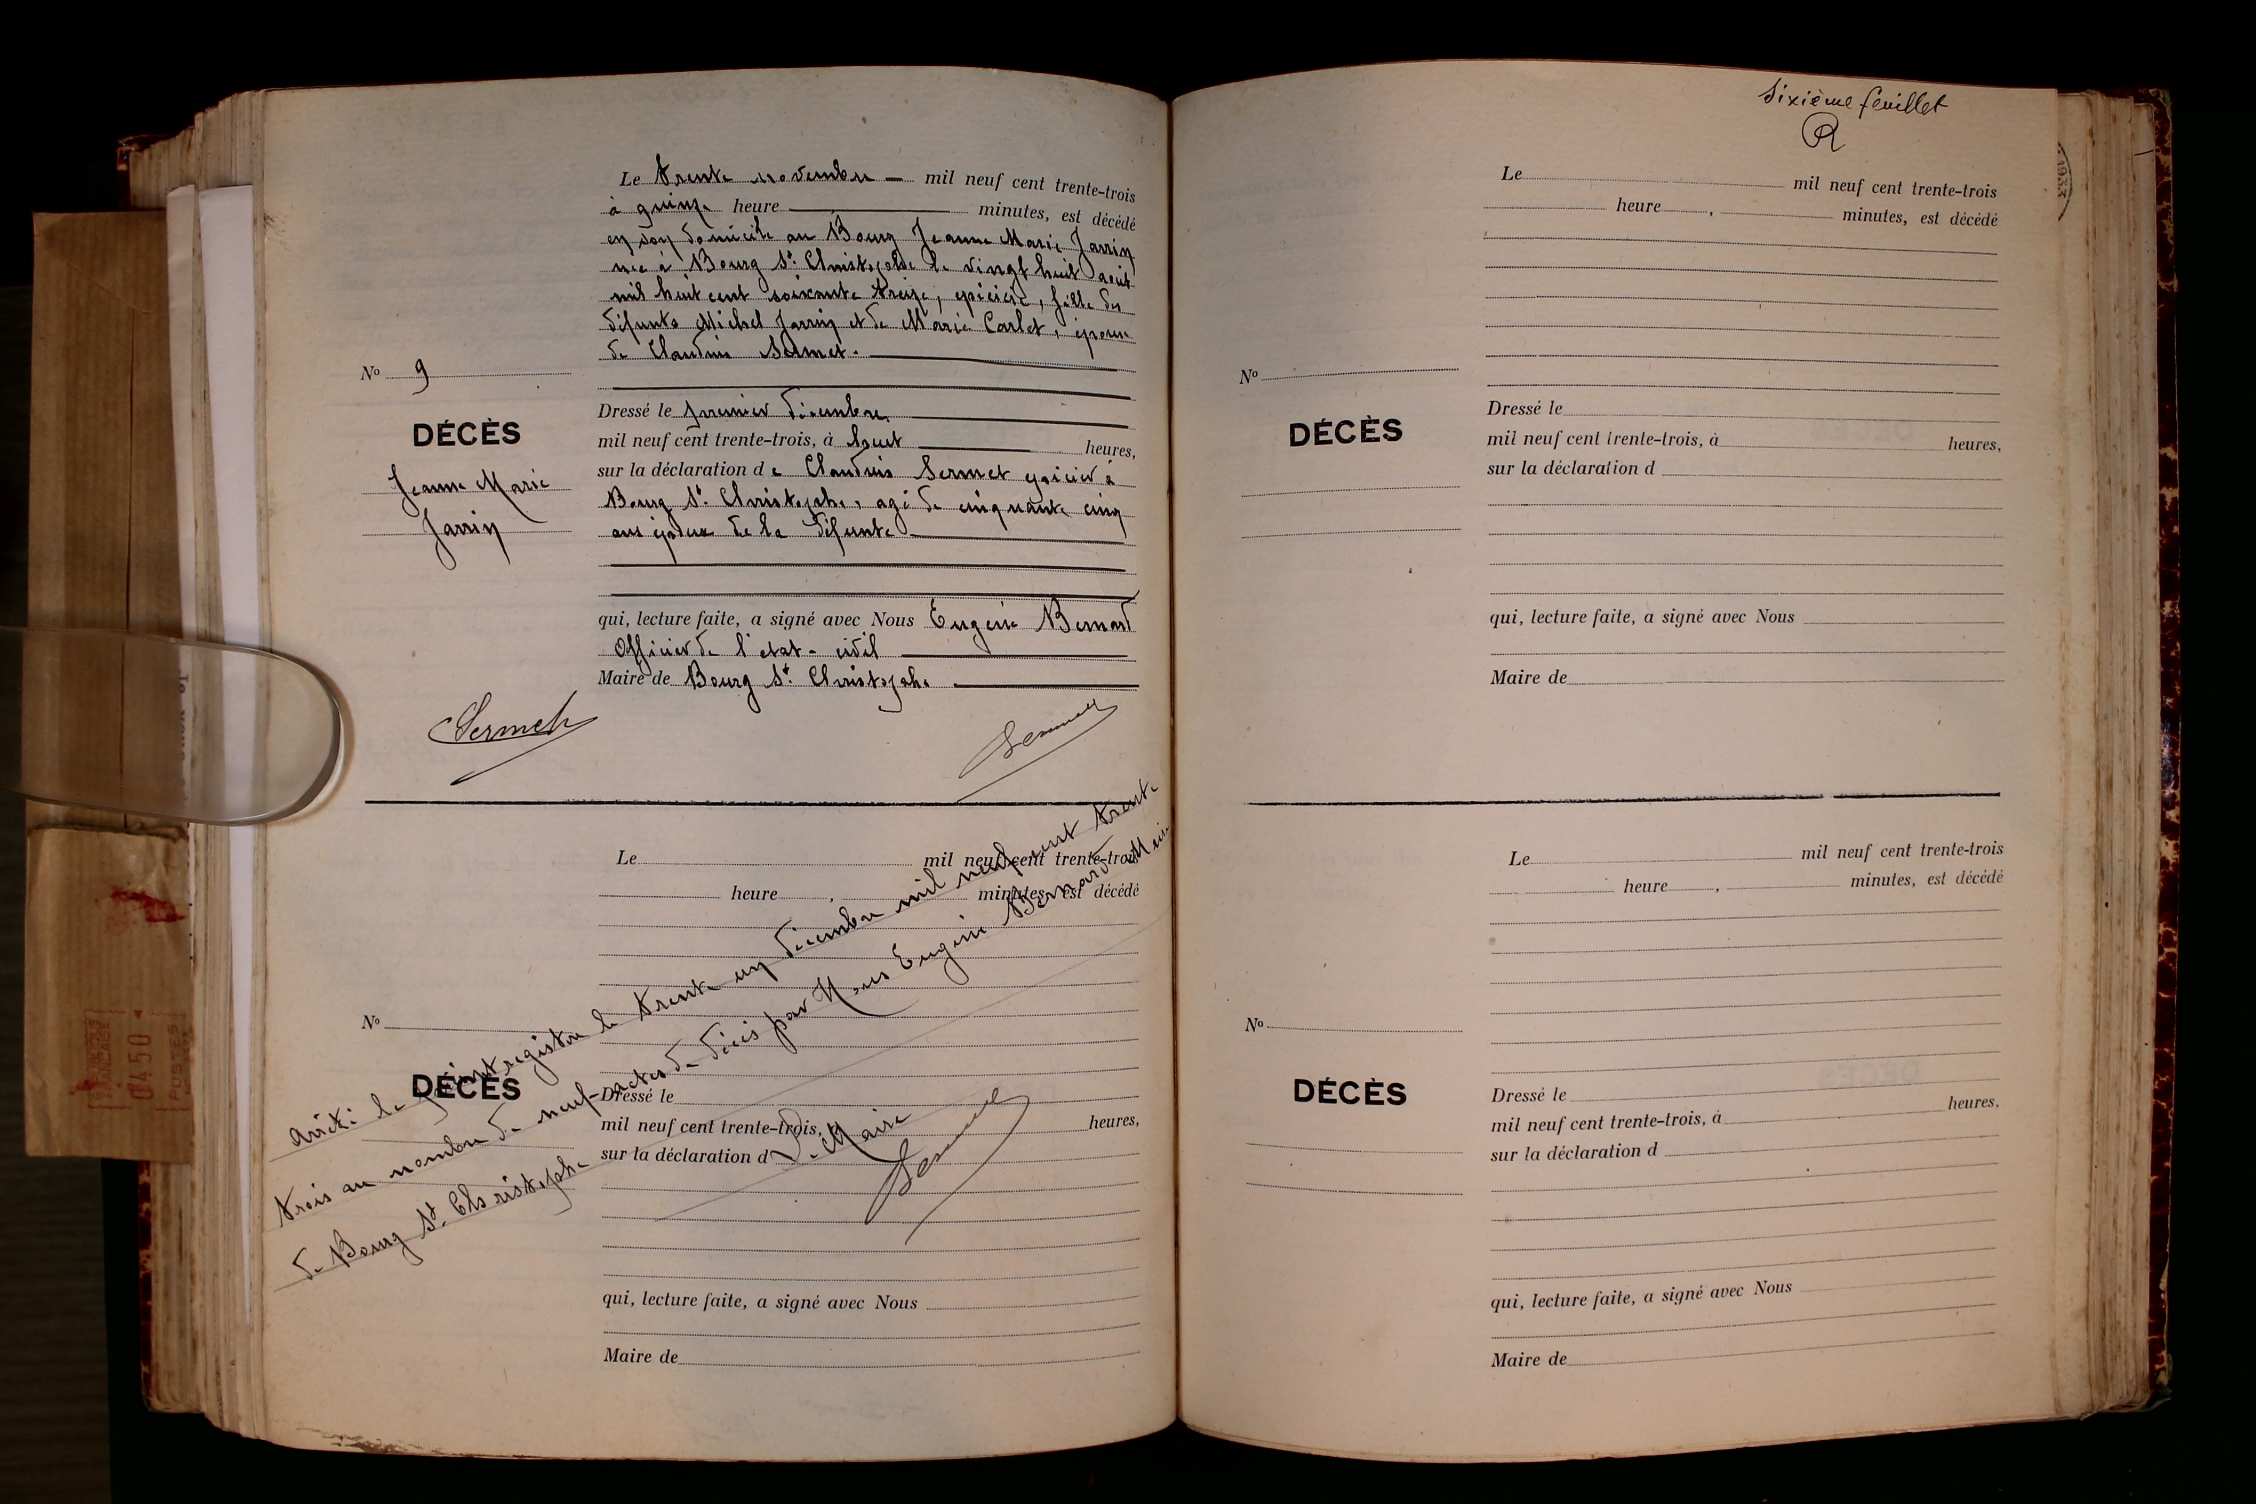 Le trente novembre — mil neuf cent trente-trois
à quinze heure minutes, est décédé
en son domicile au Bourg Jeanne Marie Jarrin
née à Bourg St. Christophe le vingt huit aout
mil huit cent soixante treize, épicière, fille des
défunts Michel Jarrin et de Marie Carlet, épouse
de Claudius Sermet.
No 9
DÉCÈS
Jeanne Marie
Jarrin
Dressé le premier décembre
mil neuf cent trente-trois, à huit heures,
sur la déclaration de Claudius Sermet épicier à
Bourg St. Christophe, agé de cinquante cinq
ans époux de la défunte
qui, lecture faite, a signé avec Nous Eugène Bernard
Officier de l'etat-civil
Maire de Bourg St. Christophe
Sermet
Le mil neuf cent trente-trois
heure , minutes, est décédé
No
DÉCÈS
Dressé le
mil neuf cent trente-trois, à heures,
sur la déclaration d
qui, lecture faite, a signé avec Nous
Maire de
Arrêté le présent registre le trente un décembre mil neuf cent trente
trois au nombre de neuf actes de décès par Nous Eugène Bernard Maire
de Bourg St. Christophe
Le Maire
sixième feuillet
R
1933
Le mil neuf cent trente-trois
heure , minutes, est décédé
No
DÉCÈS
Dressé le
mil neuf cent trente-trois, à heures,
sur la déclaration d
qui, lecture faite, a signé avec Nous
Maire de
Le mil neuf cent trente-trois
heure , minutes, est décédé
No
DÉCÈS
Dressé le
mil neuf cent trente-trois, à heures.
sur la déclaration d
qui, lecture faite, a signé avec Nous
Maire de
0450
POSTES